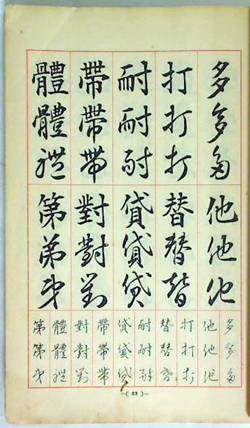 多多多
打打打
耐耐耐
帶帶帶
體體體
他他他
替替替
貸貸貸
對對對
第第第
多多多
他他他
打打打
替替替
耐耐耐
貸貸貸
帶帶帶
對對對
體體體
第第第